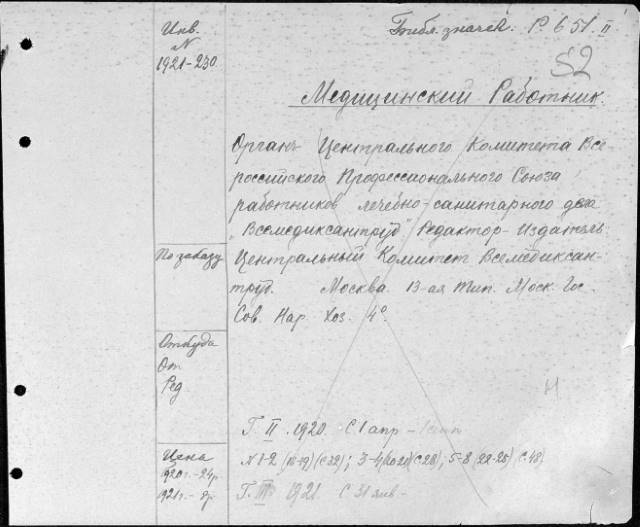 Инв.
N
1921-230
Библ. значек: Р. 651. II
52
Медицинский Работник.
Органъ Центрального Комитета Все
российского Профессионального Союза
работников лечебно-санитарного дела
„Всемедиксантруд" Редактор-Издатель
По заказу
Центральный Комитет Всемедиксан-
труд. Москва. 13-ая Тип. Моск. Гос.
Сов. Нар. Хоз. 4°.
Откуда
От
Ред.
Н
Г. II. 1920. С 1 апр -
Цена
1920 г. - 24 р.
1921 г. - р.
N 1-2 (18-19) (с 32); 3-4 (20-21) (с 28); 5-8 (22-25) (с 48)
Г. III 1921. С 31 янв -